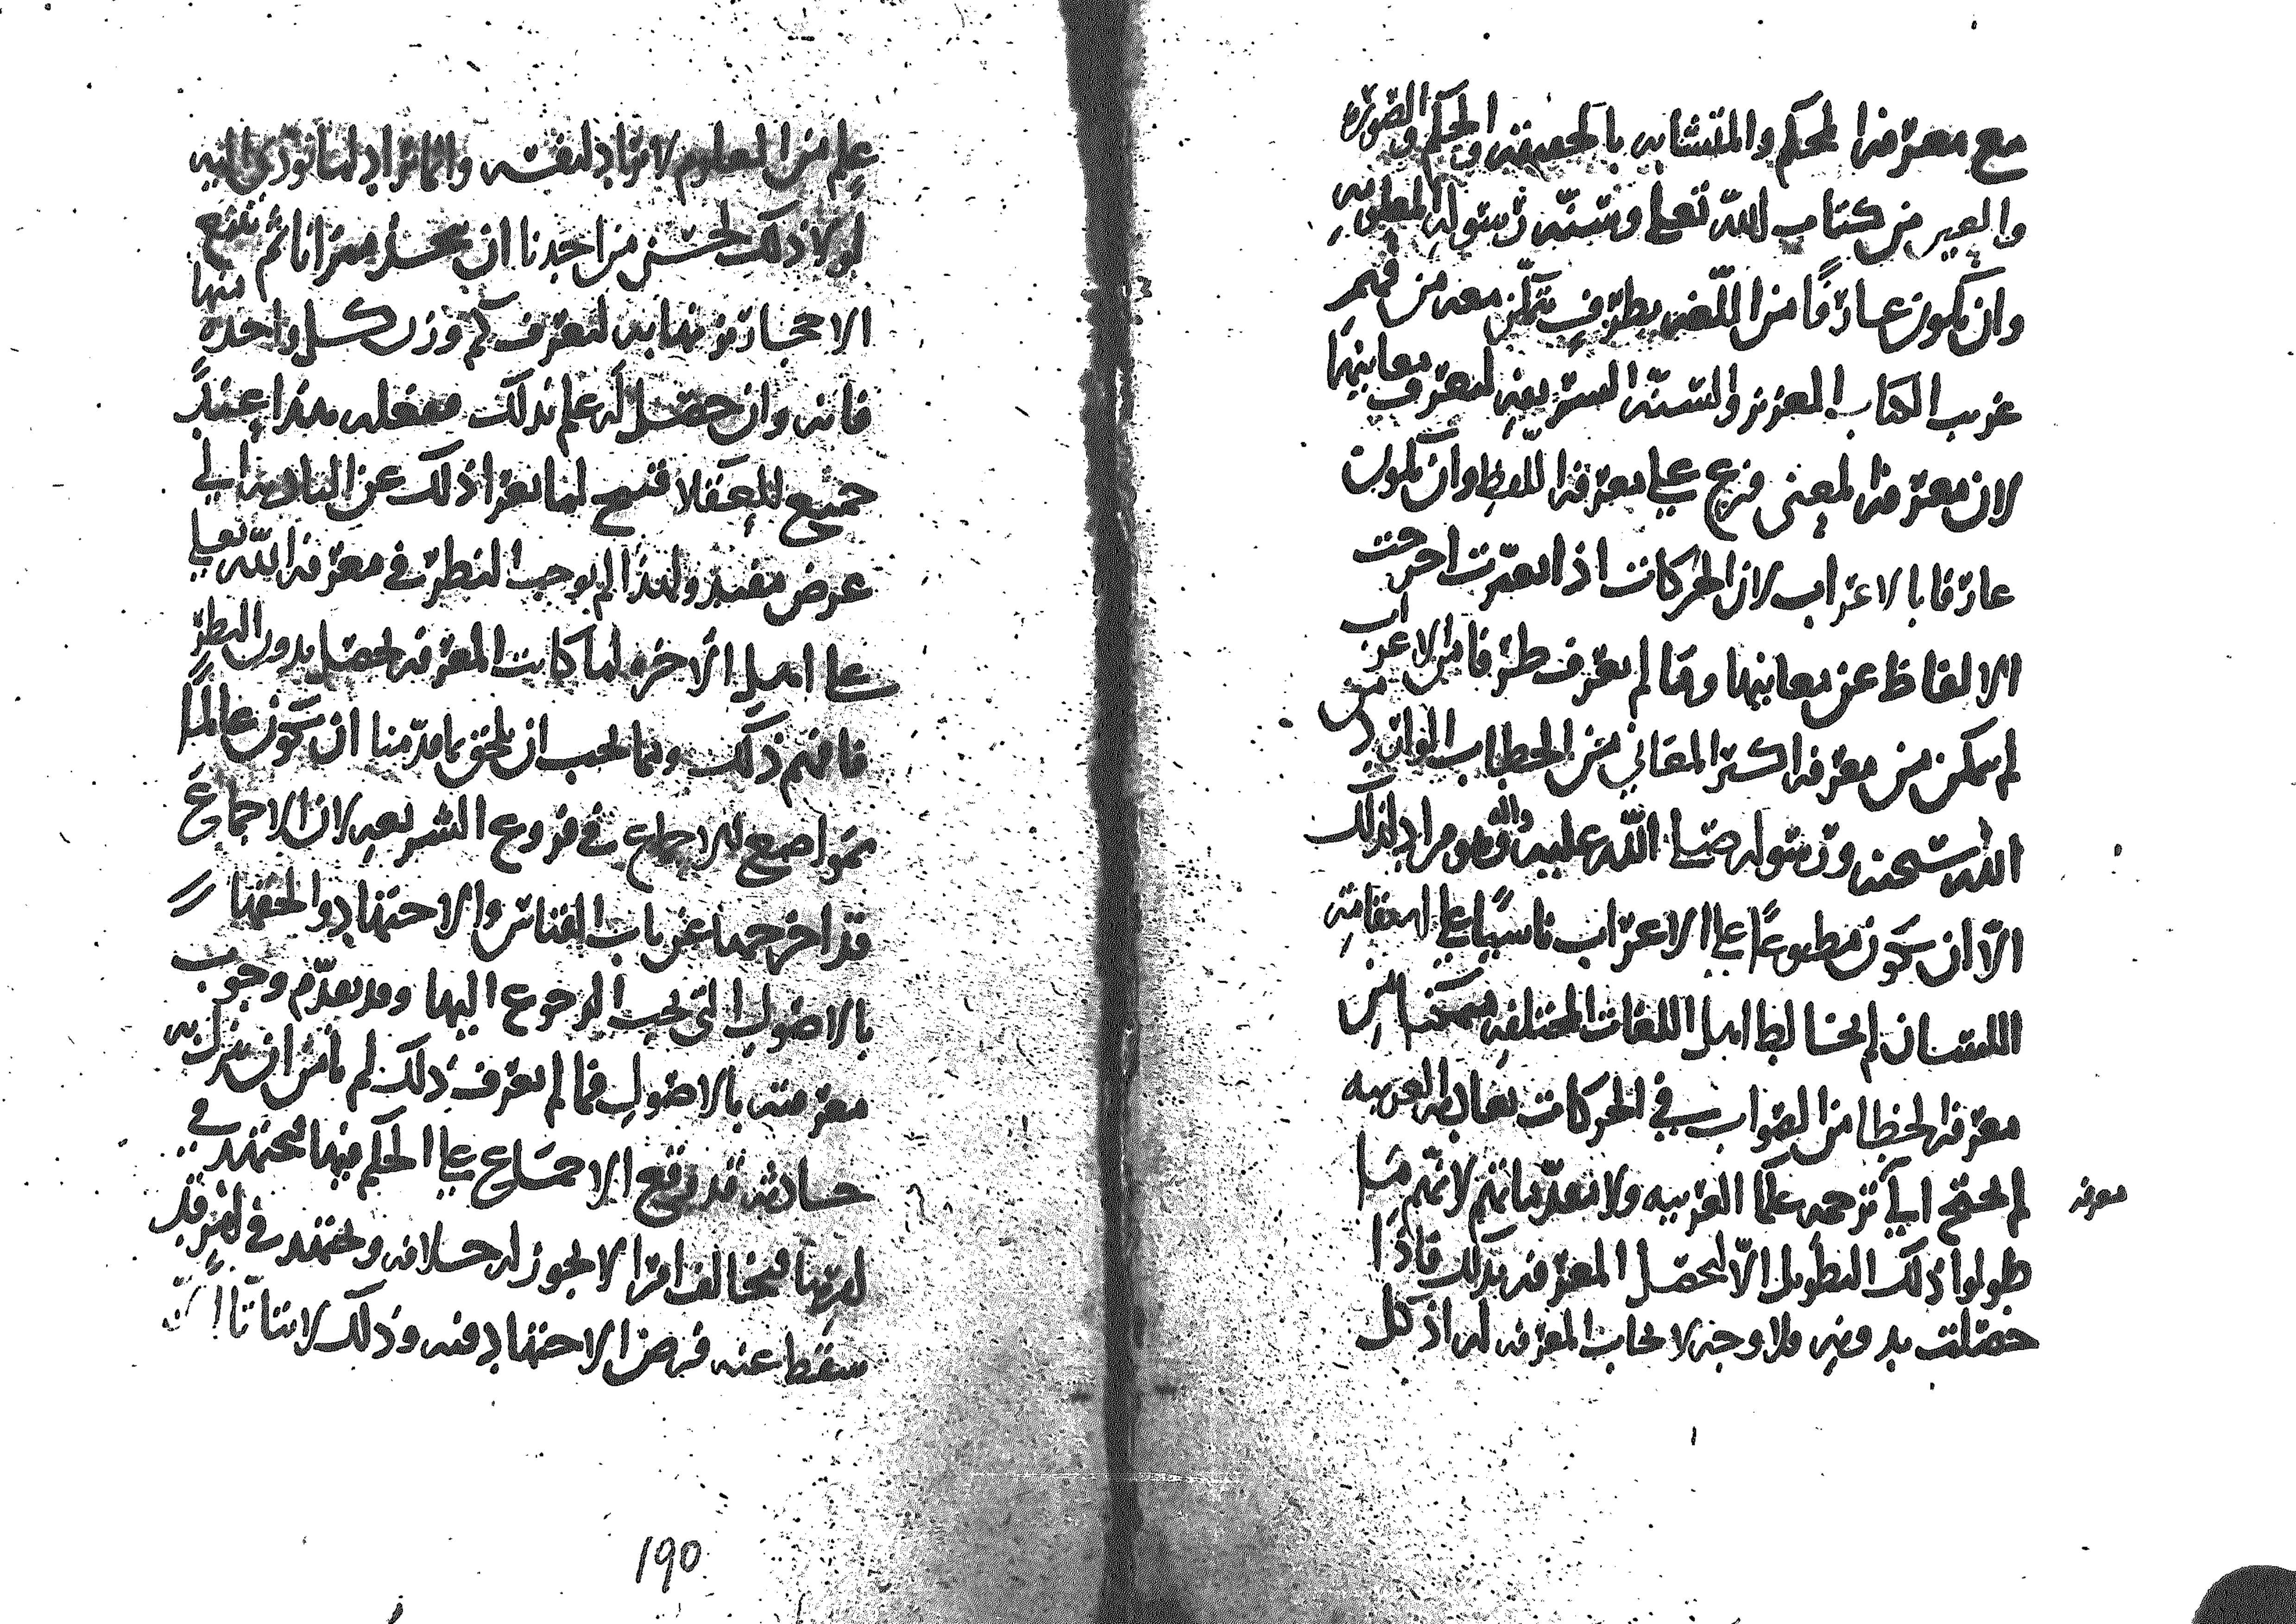 مع معرفة المحكم والمتشابه بالحقيقة في الحكم والصورة
والعبر من كتاب الله تعلى وسنة رسوله المعلومة
وان يكون عارفا من اللغة بطرف يتمكن معه من فهم
غريب الكتاب العزيز والسنة الشريفة ليعرف معانيها
لان معرفة المعنى فرع على معرفة اللفظ وان يكون
عارفا بالاعراب لان الحركات اذا تغيرت اخرجت
الالفاظ عن معانيها ومتا لم يعرف طرفا من الاعراب
لم يتمكن من معرفة اكثر المعاني من الخطاب الوارد من
الله سبحنه ورسوله صلى الله عليه واله فهو مراد لذلك
الا ان يكون مطبوعا على الاعراب ناشيا على استقامة
اللسان لم يخالط اهل اللغات المختلفة متمكنا من
معرفة الخطا من الصواب في الحركات بعادته العربيه
لم يحتج الى ترجمة علما العربيه ولا تعدادهم لانهم ما
معرفة
طولوا ذلك التطويل الا لتحصل المعرفة بذلك فاذا
حصلت بدونه فلا وجه لايجاب المعرفة له اذ كل
علم من العلوم لا يراد لنفسه وانما يراد لما يودي اليه
لولا ذلك لحسن من احدنا ان يتخذ ميزانا ثم يتتبع
الاحجار يزنها به ليعرف كم وزن كل واحدة منها
فانه وان حصل له علم بذلك ففعله هذا عند
جميع العقلا قبيح لما تعرا ذلك عن التادية الى
غرض مفيد ولهذا لم يوجب النظر في معرفة الله تعلى
على اهل الاخرة لما كانت المعرفة تحصل بدون النظر
فافهم ذلك ومما يجب ان يلحق بما قدمنا ان يكون عالما
بمواضع الاجماع في فروع الشريعة لان الاجماع
قد اخرجها عن باب القياس والاجتهاد والحقها
بالاصول التي يجب الرجوع اليها وقد تقدم وجوب
معرفته بالاصول فما لم يعرف ذلك لم يامن ان ينزل به
حادثة قد وقع الاجماع على الحكم فيها فيجتهد في
لعرفها فيخالف امرا لا يجوز له خلافه ويجتهد في امر قد
سقط عنه فرض الاجتهاد فيه وذلك لا يتاتا
١٩٥